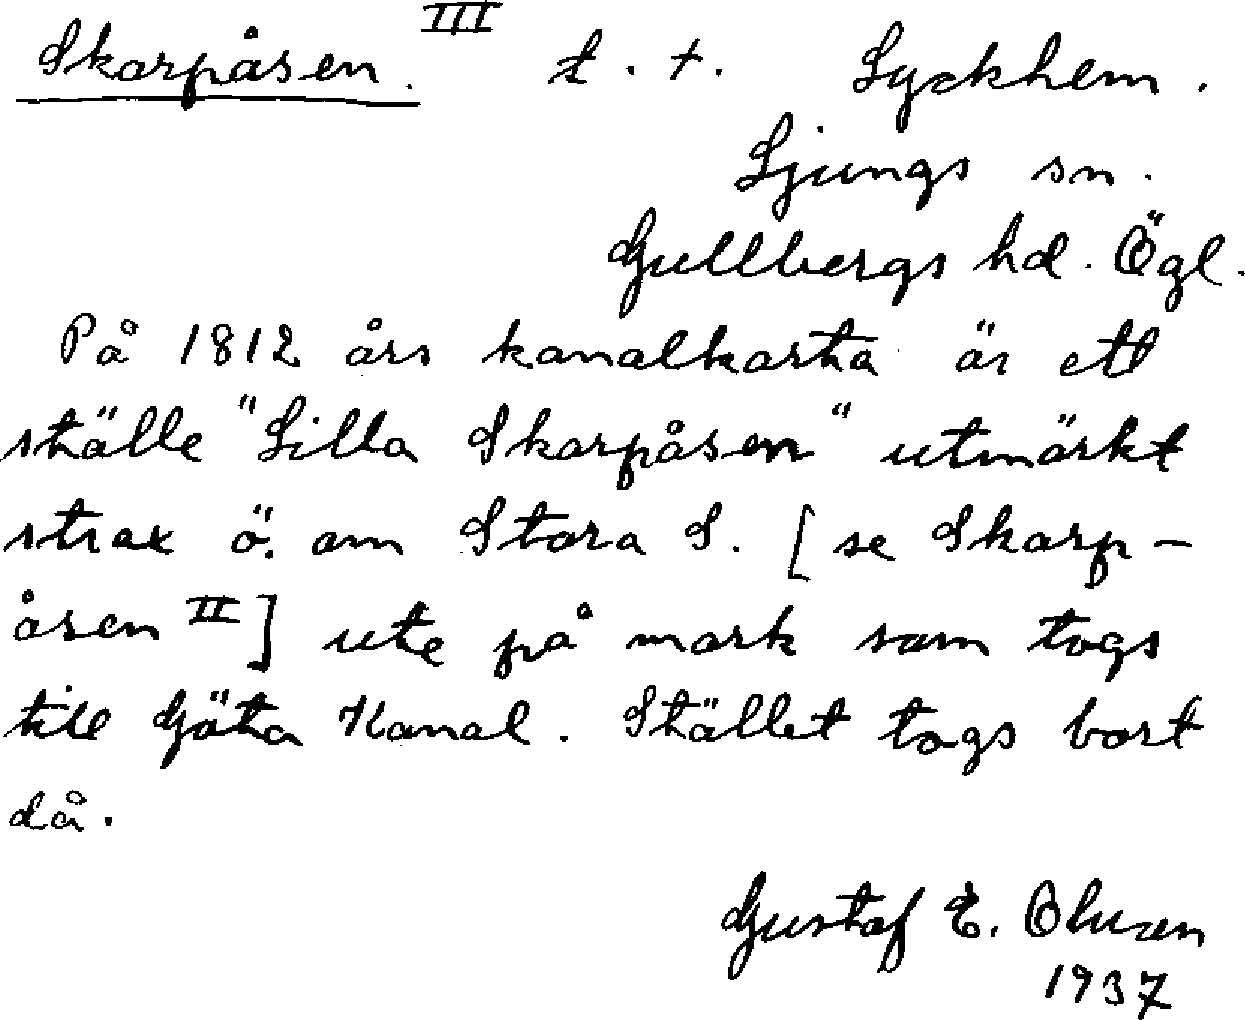 Skarpåsen. III t. +. Lyckhem.
Ljungs sn.
Gullbergs hd. Ögl.
På 1812 års kanalkarta är ett
ställe "Lilla Skarpåsen" utmärkt
strax ö. om Stora S. [se Skarp-
åsen II] ute på mark som togs
till Göta Kanal. Stället togs bort
då.
Gustaf E. Olusen
1937